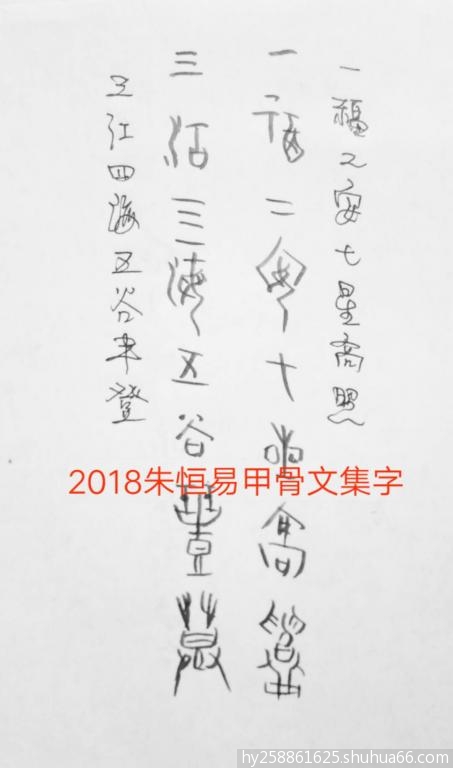 一福二安七星高照
一福二安七星高照
三江四海五谷丰登
三江四海五谷丰登
2018朱恒易甲骨文集字
hy258861625.shuhua66.com